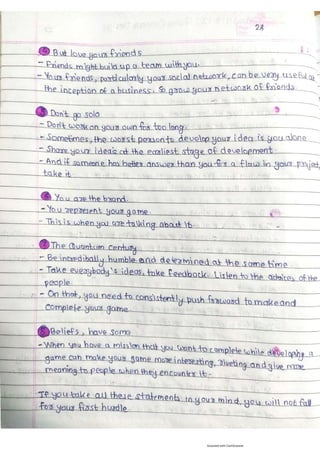 28
④ But love your friends
- Friends might build up a team with you.
- Your friends, particularly your social network, can be very useful at
the inception of a business. So grow your network of friends
⑤ Don't go solo
- Don't work on your own for too long.
- Sometimes, the worst person to develop your idea is you alone
- Share your ideas at the earliest stage of development
- And if someone has better answer than you for a flaw in your project,
take it
⑥ You are the brand
- You represent your game
- This is when you are talking about it
⑦ The Quantum Century
- Be incredibally humble and determined at the same time
- Take everybody's ideas, take feedback. Listen to the advices of the
people
- On that, you need to consistently push forward to make and
complete your game
⑧ Beliefs, have some
- When you have a mission that you want to complete while developing a
game can make your game more interesting, riveting and give more
meaning to people when they encounter it-
If you take all these statements in your mind, you will not fall
for your first hurdle.
Scanned with CamScanner